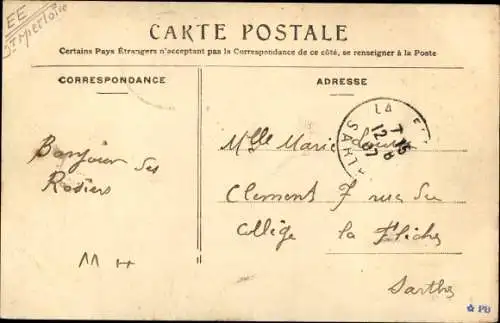 EE
CARTE POSTALE
Certains Pays Étrangers n'acceptant pas la Correspondance de ce côté, se renseigner à la Poste
CORRESPONDANCE
ADRESSE
Bonjour des
Rosiers
M H
Mlle Marie Louise
Clement 7 rue du
Collége la Flèche
Sarthe
LA
7 15
12 8
07
SARTHE
PB